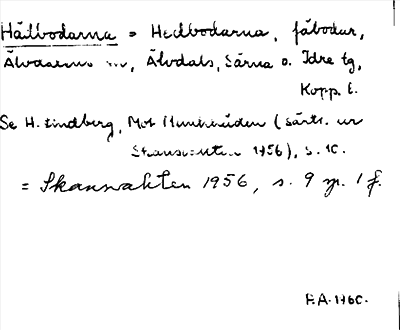 Hälbodarna = Hedbodarna, fäbodar,
Älvdalens, Älvdals, Särna o. Idre tg,
Kopp. l.
Se H. Lindberg, Mot (särtr. ur
Skansvakten 1956), s. 10.
= Skansvakten 1956, s. 9 y. 1 f.
1960.